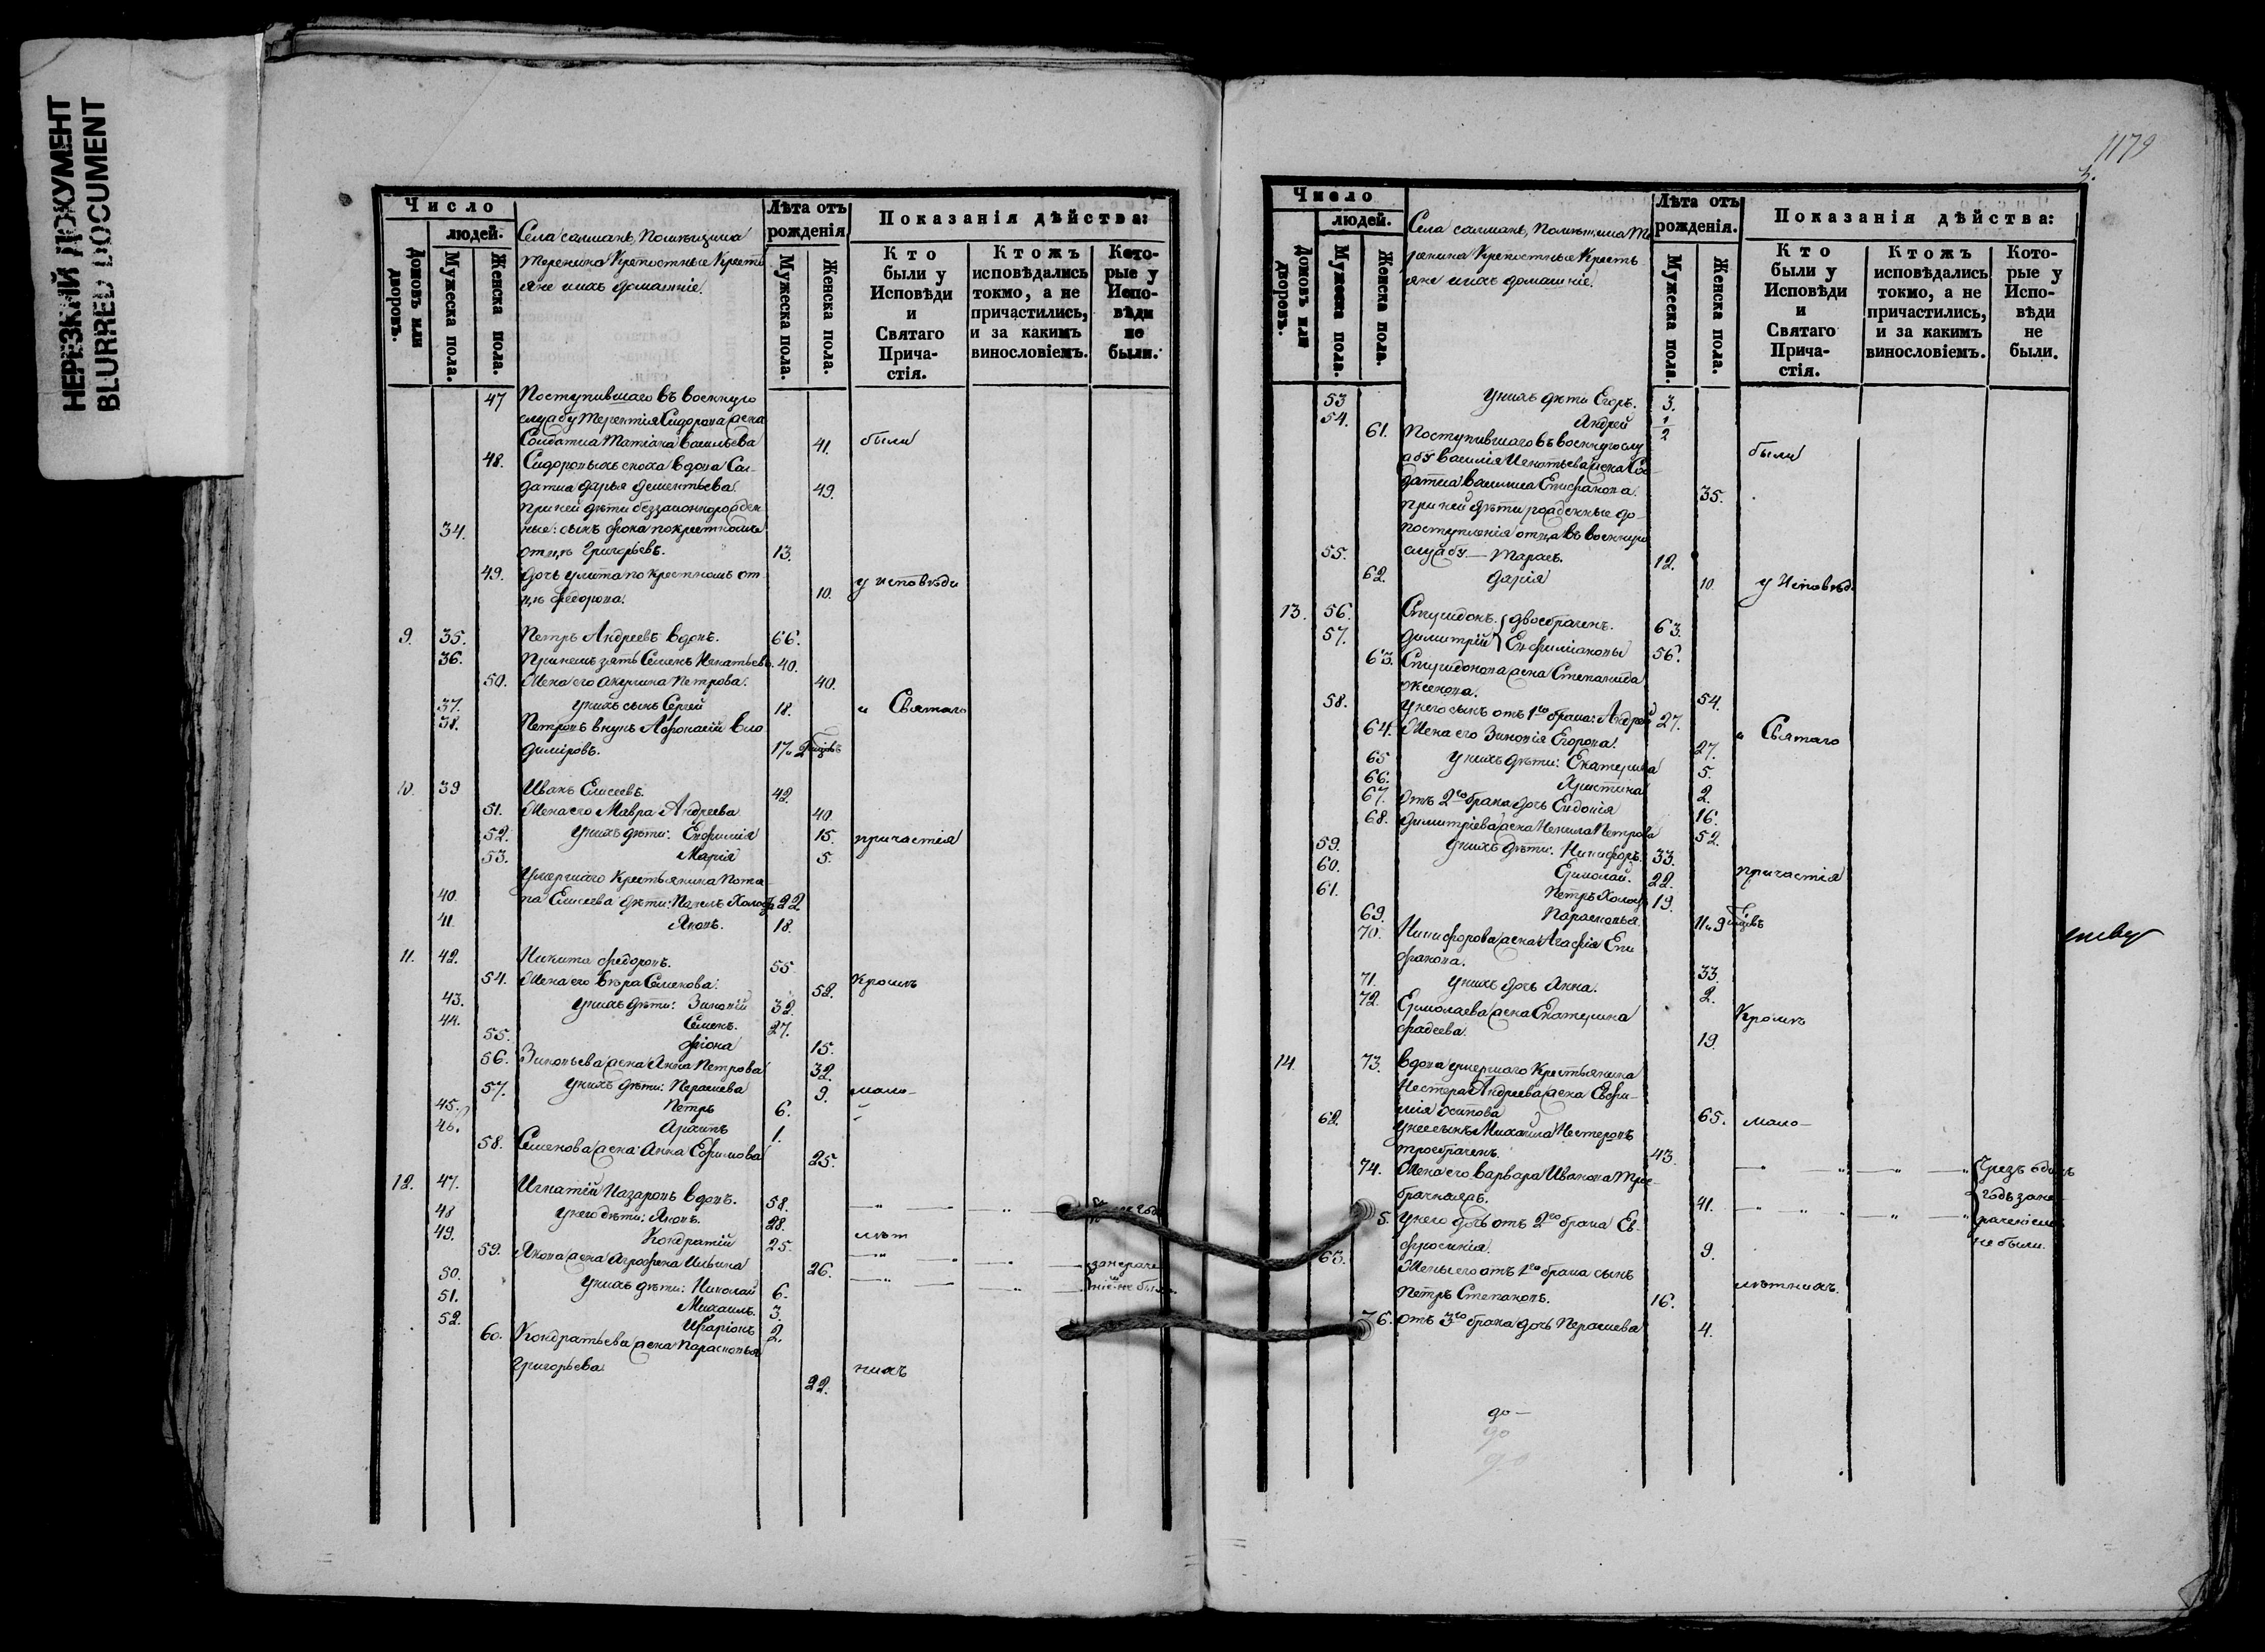 НЕРЕЗКИЙ ДОКУМЕНТ
BLURRED DOCUMENT
Число
людей.
Домовъ или дворовъ.
Мужеска пола.
Женска пола.
Села Помѣщика
Крепостные Крестья
яне ихъ домашніе.
Лѣта отъ рожденія
Мужеска пола.
Женска пола.
Показанія дѣйства:
Кто были у Исповѣди и Святаго Причастія.
Ктожъ исповѣдались токмо, а не причастились, и за какимъ винословіемъ.
Которые у Исповѣди не были.
47 Поступившаго въ военную
службу Терентія Сидорова жена
Солдатка Татіана Васильева 41. были
48. Сидоровыхъ сноха вдова Сол-
датка Дарья Дементьева. 49.
При ней дѣти беззаконнорожден
34. ные: сынъ Фока по крестному
отцѣ Григорьевъ. 13.
49. дочь Улита по крестномъ от
цѣ Федорова. 10. у исповѣди
9. 35. Петръ Андреевъ вдовъ. 66.
36. При немъ зять Семенъ Игнатьевъ. 40.
50. Жена его Акулина Петрова. 40.
37. у нихъ сынъ Сергей 18. и Святаго
38. Петровъ внукъ Афонасій Вла
диміровъ. 17.
10. 39 Иванъ Елисеевъ. 42.
51. Жена его Мавра Андреева 40.
52. у нихъ дѣти: Евфимія 15. причастія
53. Марія 5.
Умершаго Крестьянина Пота-
40. па Елисеева дѣти: Павелъ Холос 22
41. Яковъ. 18.
11. 42. Никита Федоровъ. 55
54. Жена его Вѣра Семенова. 52. Кромѣ
43. у нихъ дѣти: Зиновій 32.
44. Семенъ. 27.
55. Фіона 15.
56. Зиновьева жена Анна Петрова 32.
57. у нихъ дѣти: Перасиева 9. мало-
45. Петръ 6.
46. Архипъ 1.
58. Семенова жена Анна Ефимова 25.
12. 47. Игнатій Назаровъ вдовъ. 58.
48 у него дѣти: Яковъ. 28.
49. Кондратій 25. лѣт
59. Якова жена Агрофена Ильина 26. за нераче
50. у нихъ дѣти: Николай 6. ніемъ не были
51. Михаилъ. 3.
52. Иларіонъ 2.
60. Кондратьева жена Парасковья
Григорьева 22. нихъ
1179
Число
людей.
Домовъ или дворовъ.
Мужеска пола.
Женска пола.
Села Помѣщика
Крепостные Кресть-
яне ихъ домашніе.
Лѣта отъ рожденія.
Мужеска пола.
Женска пола.
Показанія дѣйства:
Кто были у Исповѣди и Святаго Причастія.
Ктожъ исповѣдались токмо, а не причастились, и за какимъ винословіемъ.
Которые у Исповѣди не были.
53 у нихъ дѣти Егоръ. 3.
54. Андрей 1/2
61. Поступившаго въ военную слу
жбу Василія Игнатьева жена Сол- были
датка Василиса Епифанова. 35.
при ней дѣти рожденные до
поступленія отца въ военную
55. службу — Тарасъ. 12.
62. Дарія 10. у Исповѣд.
13. 56. Спиридонъ. двоебраченъ. 63.
57. Димитрій Евфиміановы 56.
63. Спиридонова жена Степанида
Аксенова. 54.
58. у него сынъ отъ 1го брака: Андрей 27.
64. Жена его Зиновія Егорова. 27. и Святаго
65 у нихъ дѣти: Екатерина 5.
66. Христина 2.
67. Отъ 2го брака дочь Евдокія 16.
68. Димитріева жена Ненила Петрова 52.
59. у нихъ дѣти: Никифоръ. 33.
60. Ермолай. 22. причастія
61. Петръ Холос 19.
69. Парасковья.
70. Никифорова жена Агафія Епи
фанова. 33.
71. у нихъ дочь Анна. 2.
72. Ермолаева жена Екатерина Кромѣ
Фадеева. 19.
14. 73. Вдова умершаго Крестьянина
Нестера Андреева жена Евфи-
мія Осипова 65. мало-
62. у нее сынъ Михаила Нестеровъ
троебраченъ. 43.
74. Жена его Варвара Иванова Трое- Чрезъ одинъ
брачнаяжъ. 41. годъ за не
5. у него дочь отъ 2го брака Ев- раченіемъ
фросинія. 9. не были.
63. Жены его отъ 1го брака сынъ
Петръ Степановъ. 16. лѣтнихъ.
76. отъ 3го брака дочь Перасиева 4.
до —
до